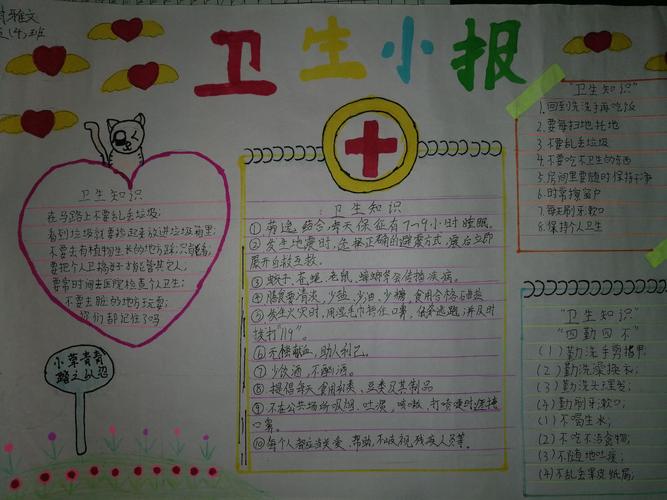 雅文
(4)班
卫生小报
卫生知识
在马路上不要乱丢垃圾;
看到垃圾就要捡起来放进垃圾筒里;
不要去有植物生长的地方踩;
要把个人卫搞好才能管其它人;
要常时间去医院检查个人卫生;
不要去脏的地方玩耍;
你们都记住了吗
小草青青
踏之何忍
卫生知识
① 劳逸结合每天保证有7~9小时睡眠。
② 发生地震时,选择正确的避震方式,震后立即
展开自救互救。
③ 蚊子、苍蝇、老鼠、蟑螂等会传播疾病。
④ 膳食要清淡,少盐、少油、少糖,食用合格碘盐
⑤ 发生火灾时,用湿毛巾捂住口鼻,低姿逃跑,并及时
拨打"119"。
⑥ 无偿献血,助人利己。
⑦ 少饮酒,不酗酒。
⑧ 提倡每天食用奶类、豆类及其制品
⑨ 不在公共场所吸烟、吐痰,咳嗽、打喷嚏时遮掩
口鼻。
⑩ 每个人都应当关爱、帮助、不歧视残疾人员等。
"卫生知识"
1.回到先洗手再吃饭
2.要每扫地拖地
3.不要乱丢垃圾
4.不要吃不卫生的东西
5.房间里要随时保持干净
6.时常擦窗户
7.每刷牙漱口
8.保持个人卫生
"卫生知识"
"四勤四不"
(1)勤洗手剪指甲
(2)勤洗澡换衣;
(3)勤洗头理发;
(4)勤刷牙漱口;
(1)不喝生水;
(2)不吃不洁食物;
(3)不随地吐痰;
(4)不乱丢果皮纸屑;